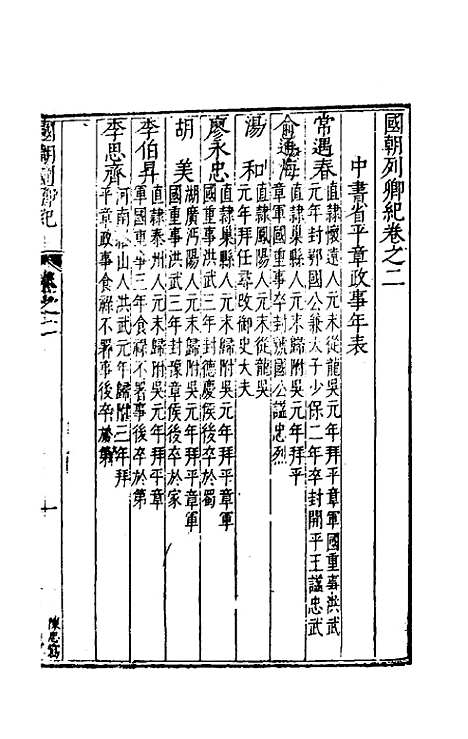 國朝列卿紀卷之二
中書省平章政事年表
常遇春
直隸懷遠人元末從龍吳元年拜平章軍國重事洪武
元年封鄂國公兼太子少保二年卒封開平王諡忠武
俞通海
直隸巢縣人元末歸附吳元年拜平
章軍國重事卒封虢國公諡忠烈
湯和
直隸鳳陽人元末從龍吳
元年拜任尋改御史大夫
廖永忠
直隸巢縣人元末歸附吳元年拜平章軍
國重事洪武三年封德慶侯後卒於蜀
胡美
湖廣沔陽人元末歸附吳元年拜平章軍
國重事洪武三年封豫章侯後卒於家
李伯昇
直隸泰州人元末歸附吳元年拜平章
軍國重事三年食祿不署事後卒於第
李思齊
河南山人洪武元年歸附三年拜
平章政事食祿不署事後卒於第
國朝列卿紀
卷之二
一
陳思